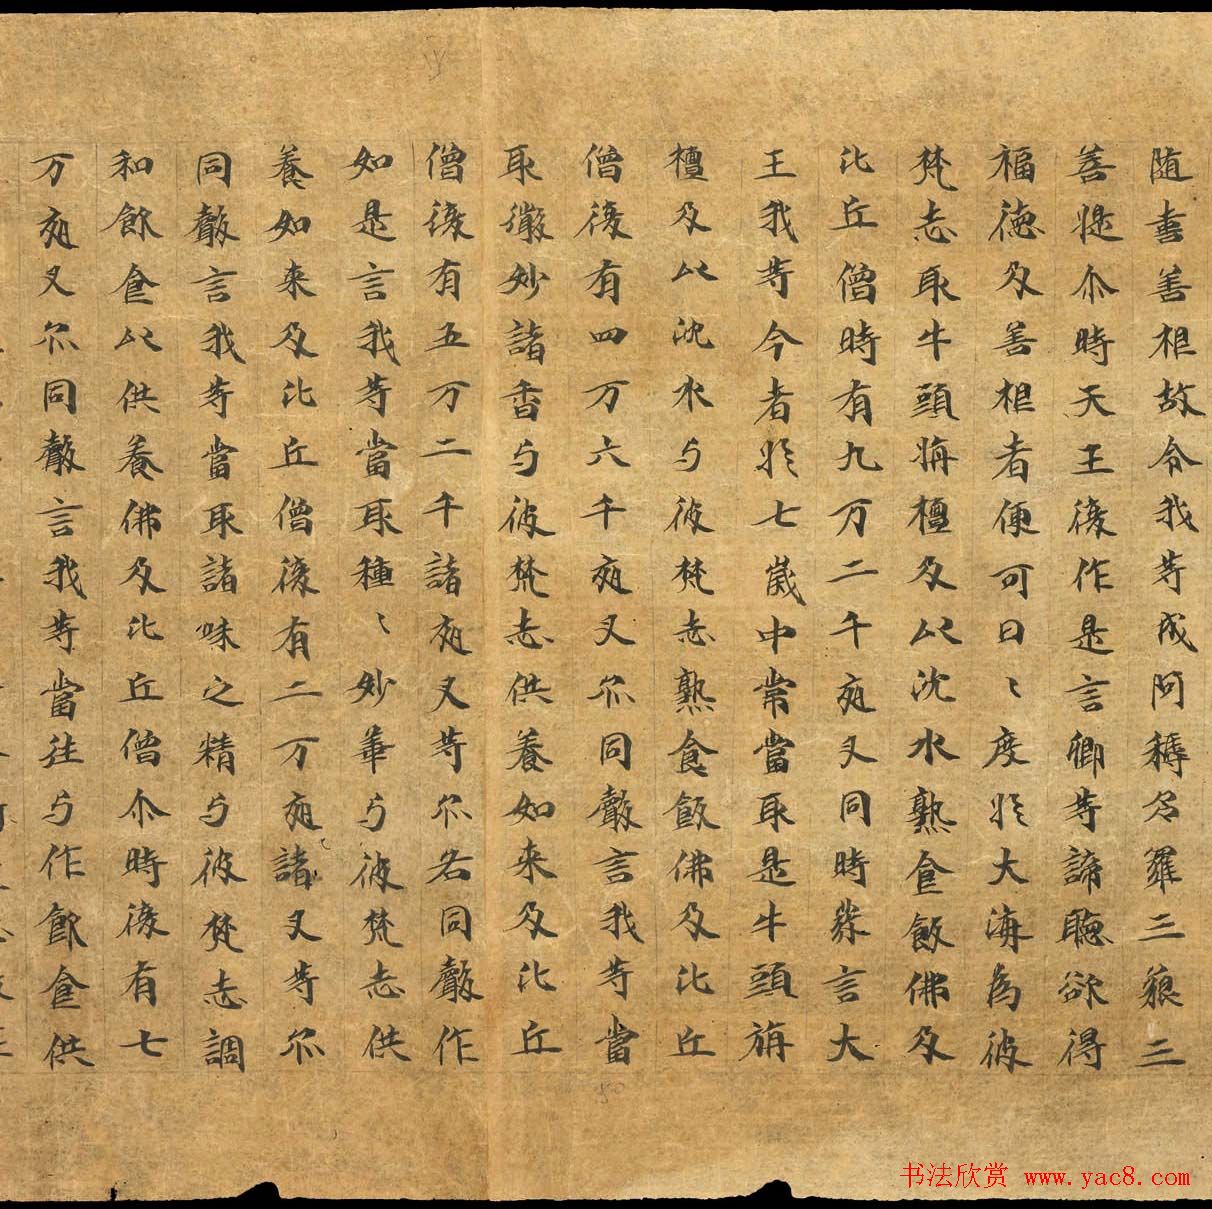 随書善相故令我等成阿耨多羅三藐三
善提尒時天王復作是言卿等諦聽欲得
福徳及善相者便可日〻度於大海為彼
梵志取牛頭栴檀及以沈水熟食飯佛及
比丘僧時有九万二千夜叉同時發言大
王我等今者於七歲中常當取是牛頭旃
檀及以沈水与彼梵志熟食飯佛及比丘
僧復有四万六千夜叉尒同聲言我等當
取微妙諸香与彼梵志供養如来及比丘
僧復有五万二千諸夜叉等尒各同聲作
如是言我等當取種〻妙華与彼梵志供
養如来及比丘僧復有二万夜諸叉等尒
同聲言我等當取諸味之精与彼梵志調
和飲食以供養佛及比丘僧尒時復有七
万夜叉尒同聲言我等當往与作飲食供
书法欣赏 www.yac8.com